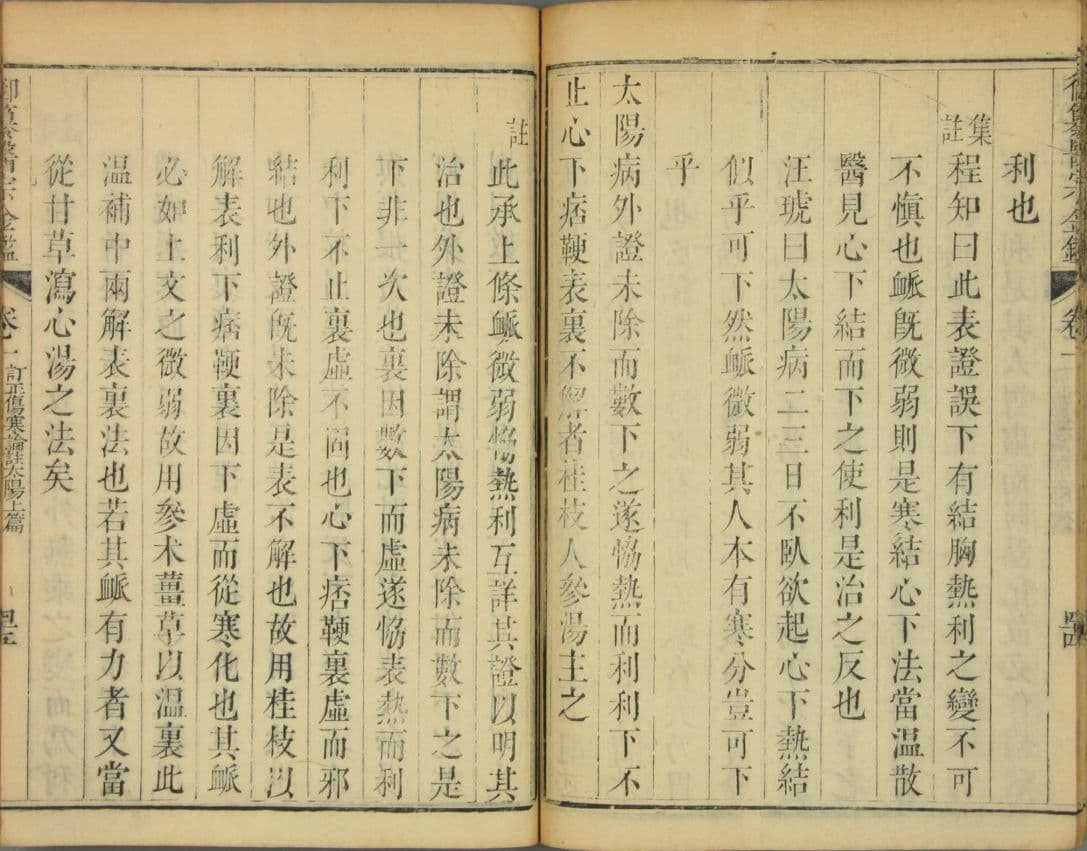 御纂醫宗金鑑 卷一
利也
集註
程知曰此表證誤下有結胸熱利之變不可
不慎也䘑既微弱則是寒結心下法當温散
醫見心下結而下之使利是治之反也
汪琥曰太陽病二三日不臥欲起心下熱結
似乎可下然䘑微弱其人本有寒分豈可下
乎
太陽病外證未除而數下之遂恊熱而利利下不
止心下痞鞕表裏不解者桂枝人參湯主之
註
此承上條䘑微弱恊熱利互詳其證以明其
治也外證未除謂太陽病未除而數下之是
下非一次也裏因數下而虛遂恊表熱而利
利下不止裏虛不固也心下痞鞕裏虛而邪
結也外證既未除是表不解也故用桂枝以
解表利下痞鞕裏因下虛而從寒化也其䘑
必如上文之微弱故用參术薑草以温裏此
温補中兩解表裏法也若其䘑有力者又當
從甘草瀉心湯之法矣
御纂醫宗金鑑 卷一 訂正傷寒論註太陽上篇